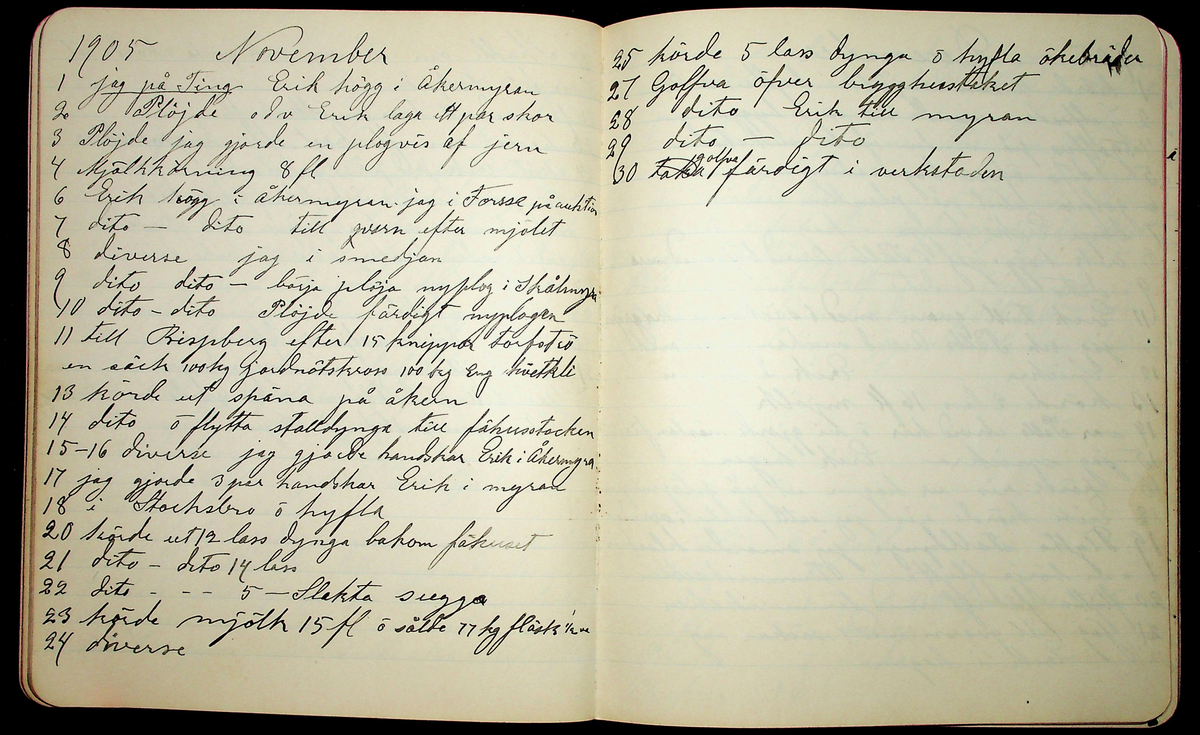 1905 November
1 jag på Ting Erik högg i Åkermyran
2 Plöjde o d v Erik laga ett par skor
3 Plöjde jag gjorde en plogvis af jern
4 Mjölkkörning 8 fl
6 Erik högg i åkermyran jag i Forsse på auktion
7 dito — dito till qvarn efter mjölet
8 diverse jag i smedjan
9 dito dito — börja plöja nyplog i
10 dito - dito Plöjde färdigt nyplogen
11 till Rispberg efter 15 knippor torfströ
en säck 100 kg jordnötskross 100 kg Eng hvetkli
13 körde ut spåna på åkern
14 dito ö flytta stalldynga till fähusstacken
15-16 diverse jag gjorde handskar Erik i Åkermyra
17 jag gjorde 3 par handskar Erik i myran
18 i Stocksbro ö hyfla
20 körde ut 12 lass dynga bakom fähuset
21 dito - dito 14 lass
22 dito - - - 5 — Slakta sugga
23 körde mjölk 15 fl ö sålde 77 kg fläsk
24 diverse
25 körde 5 lass dynga ö hyfla
27 Golfva öfver brygghustaket
28 dito Erik till myran
29 dito — dito
30 golfva färdigt i verkstaden